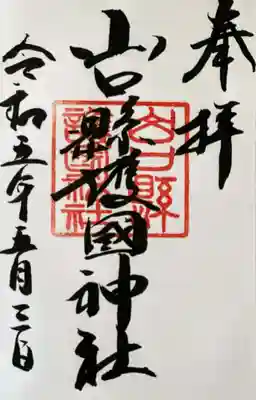 奉拝
山口縣護國神社
山口縣
護國神社
令和五年五月三日